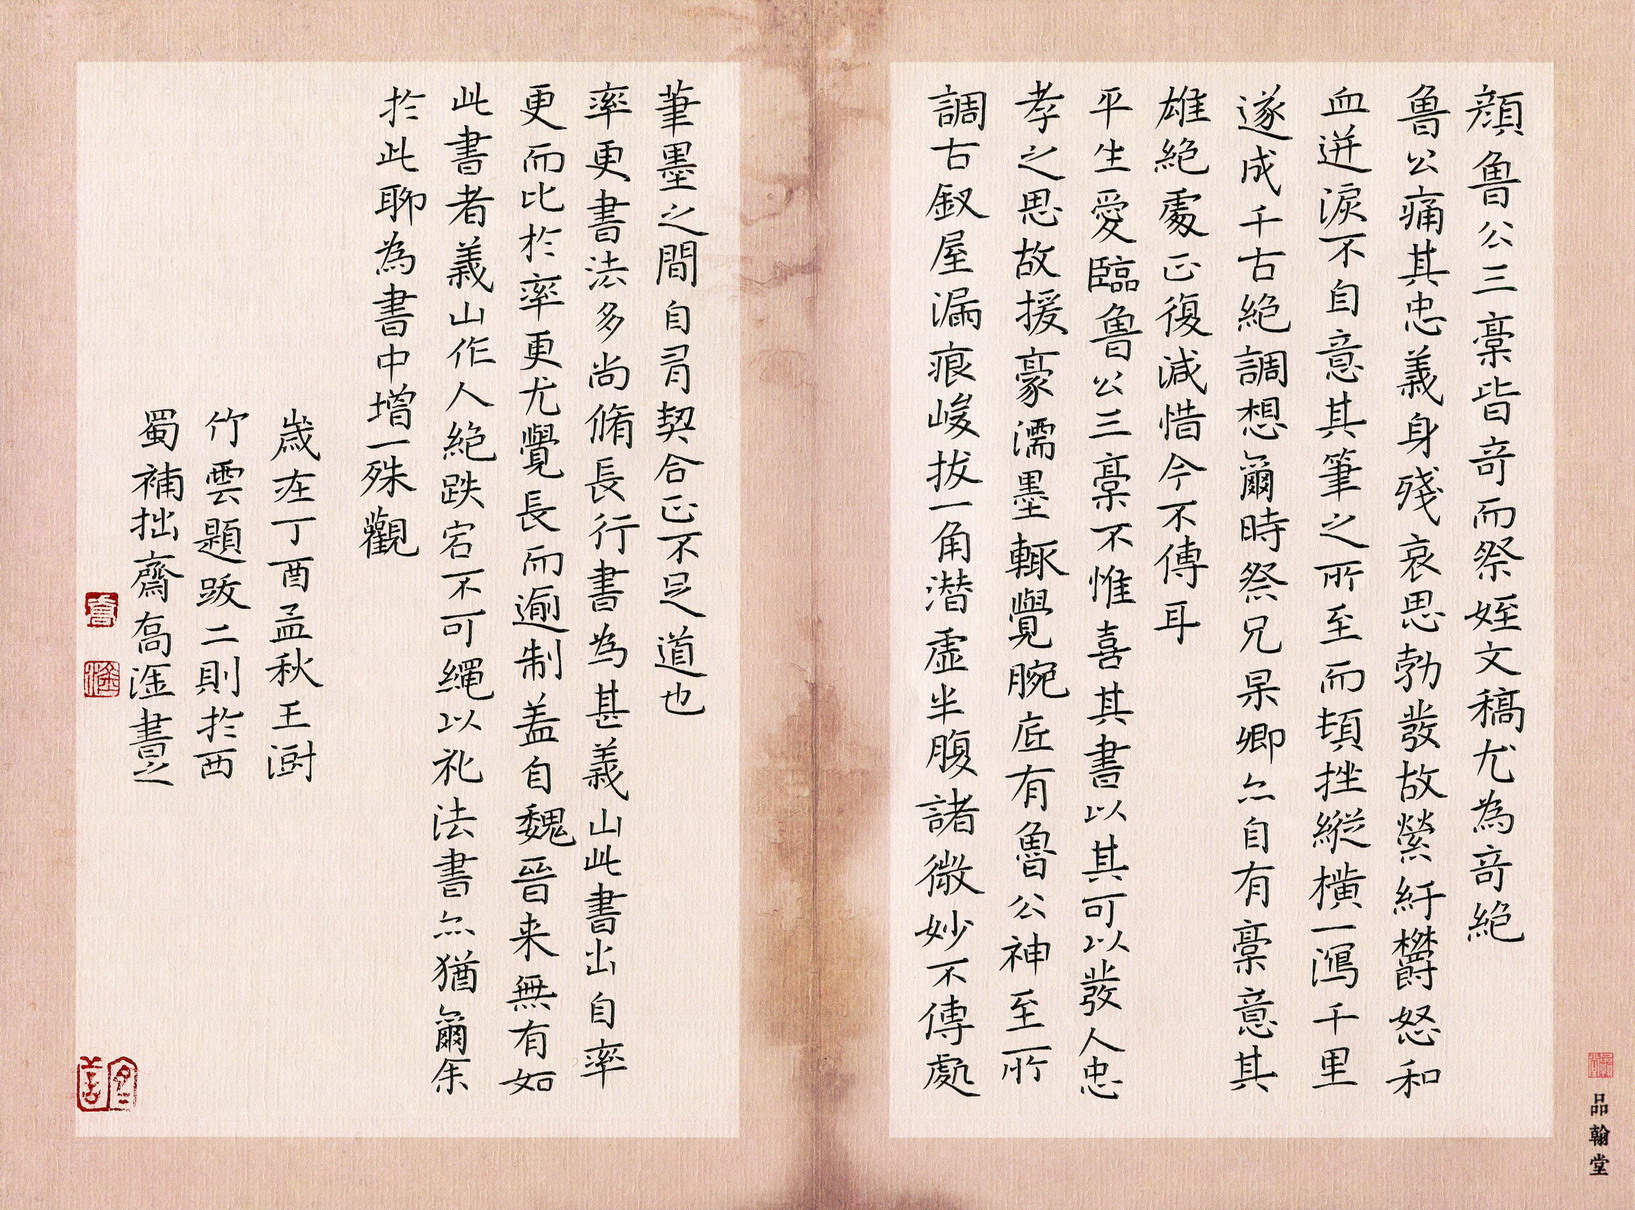 顏魯公三稾皆竒而祭姪文稿尤為竒絶
魯公痛其忠義身殘哀思勃發故縈紆欝怒和
血迸淚不自意其筆之所至而頓挫縱橫一瀉千里
遂成千古絶調想爾時祭兄杲卿亦自有稾意其
雄絶處正復減惜今不傳耳
平生愛臨魯公三稾不惟喜其書以其可以發人忠
孝之思故援豪濡墨輒覺腕底有魯公神至所
調古釵屋漏痕峻拔一角潛虛半腹諸微妙不傳處
筆墨之間自有契合正不足道也
率更書法多尚脩長行書為甚義山此書出自率
更而比於率更尤覺長而逾制蓋自魏晉来無有如
此書者義山作人絶跌宕不可繩以礼法書亦猶爾余
於此聊為書中增一殊觀
歲在丁酉孟秋王澍
竹雲題跋二則於西
蜀補拙齋高滙書之
品翰堂